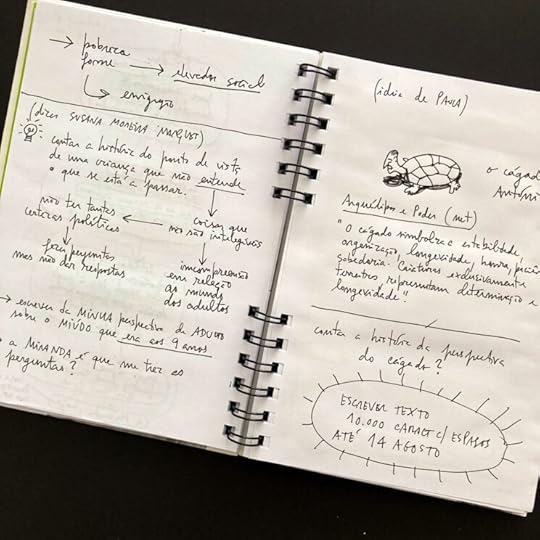 → pobreza
fome → elevador social
↳ emigração
(dica SUSANA MOREIRA MARQUES)
contar a história do ponto de vista
de uma criança que não entende
o que se está a passar.
não ter tantas
certezas políticas
←
coisas que
não são inteligíveis
fazer perguntas
mas não dar respostas
incompreensão
em relação
ao mundo
dos adultos
→ escrever da MINHA perspectiva de ADULTO
sobre o MIÚDO que era aos 9 anos
a MIRANDA é que me fez as
perguntas?
(ideia de PAULA)
o cágado
António
Arquétipos e Poder (net)
"O cágado simboliza a estabilidade,
organização, longevidade, honra,
sabedoria. Criaturas exclusivamente
terrestres representam determinação e
longevidade."
contar a história da perspectiva
do cágado?
ESCREVER TEXTO
10.000 CARACT C/ ESPAÇOS
ATÉ 14 AGOSTO